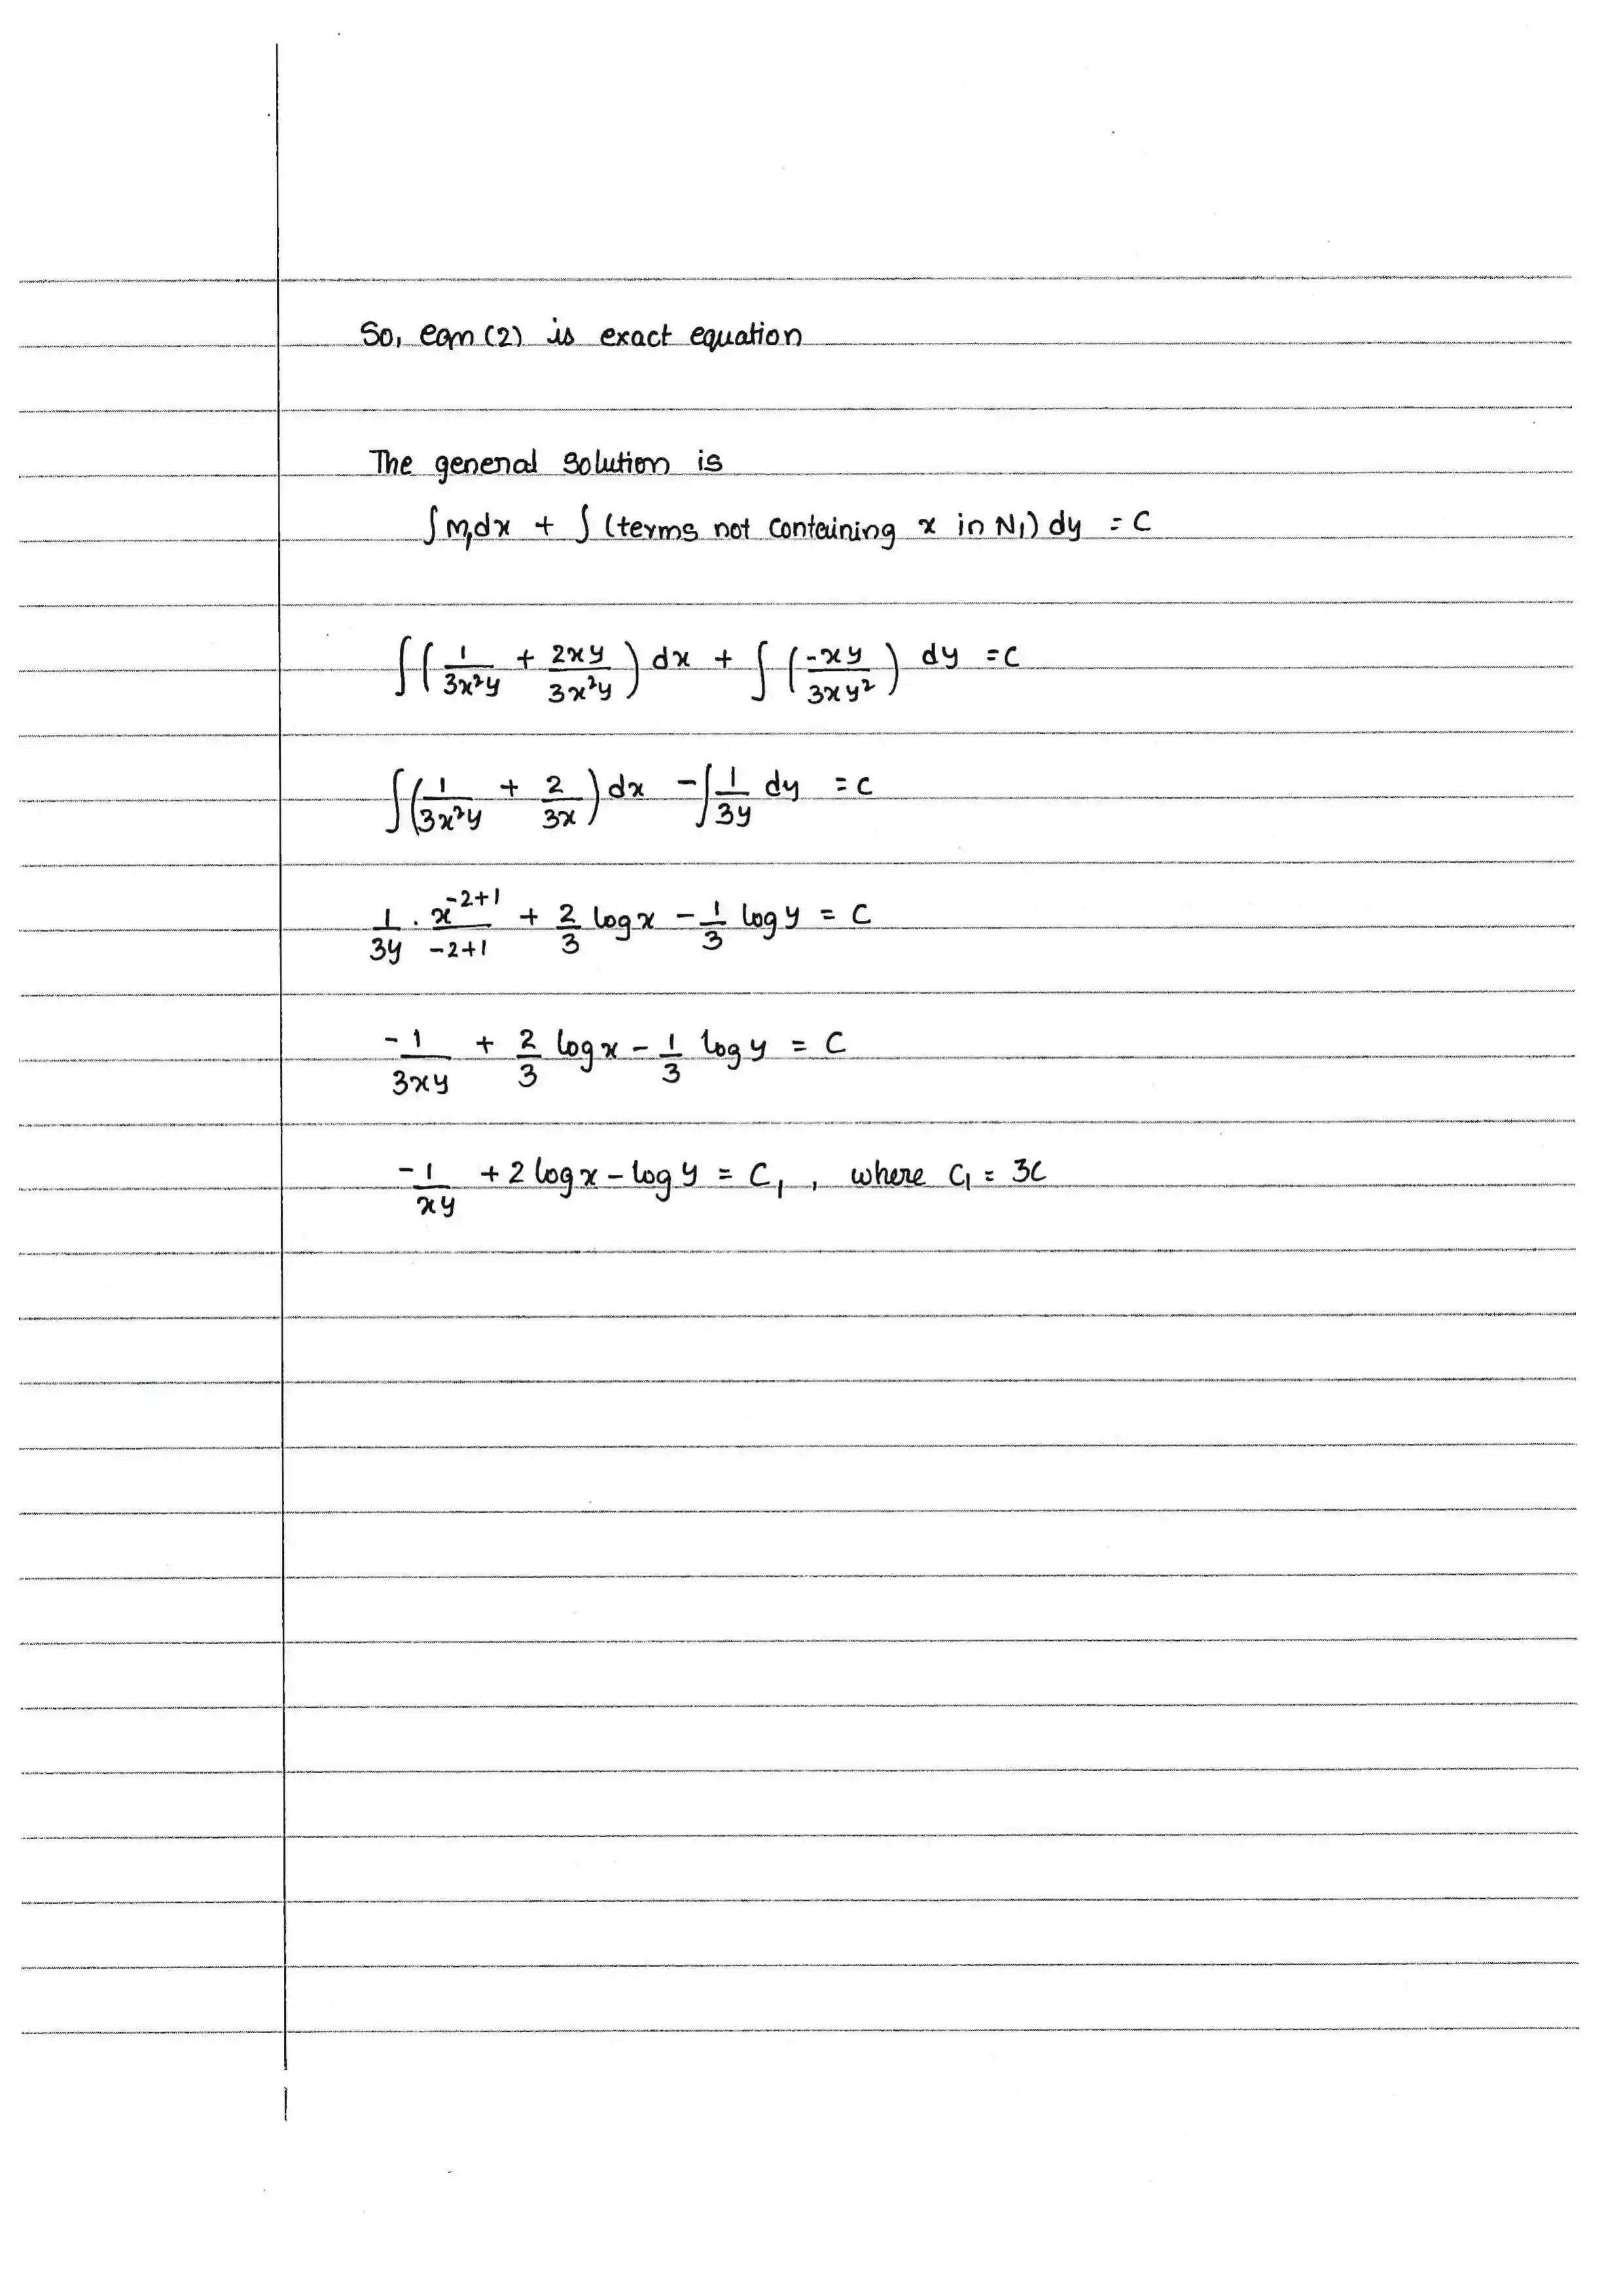 So, eqn (2) is exact equation
The general solution is
∫ M₁dx + ∫ (terms not containing x in N₁) dy = C
∫ ( 1/3x²y + 2xy/3x²y ) dx + ∫ ( -xy/3xy² ) dy = C
∫ ( 1/3x²y + 2/3x ) dx - ∫ 1/3y dy = C
1/3y . x^(-2+1)/-2+1 + 2/3 log x - 1/3 log y = C
-1/3xy + 2/3 log x - 1/3 log y = C
-1/xy + 2 log x - log y = C₁ , where C₁ = 3C